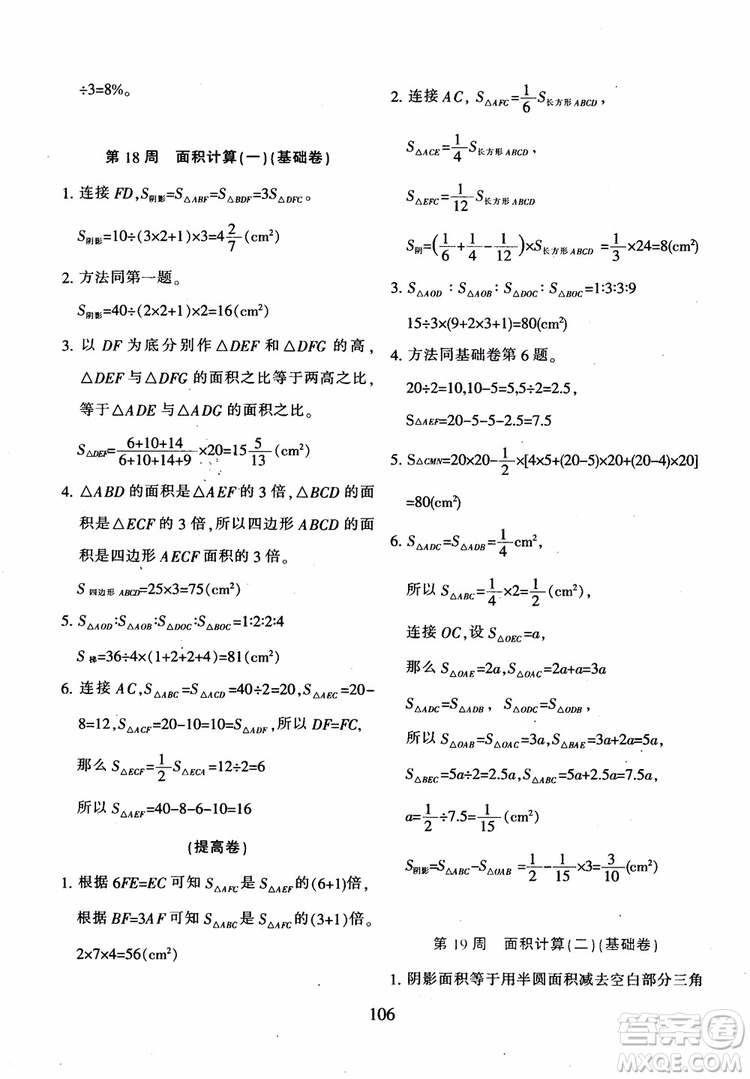 ÷3=8%。
第 18 周 面积计算(一)(基础卷)
1. 连接 FD,S阴影=S△ABF=S△BDF=3S△DFC。
S阴影=10÷(3×2+1)×3=4 2/7(cm²)
2. 方法同第一题。
S阴影=40÷(2×2+1)×2=16(cm²)
3. 以 DF 为底分别作△DEF 和△DFG 的高,
△DEF 与△DFG 的面积之比等于两高之比,
等于△ADE 与△ADG 的面积之比。
S△DEF=(6+10+14)/(6+10+14+9)×20=15 5/13(cm²)
4. △ABD 的面积是△AEF 的 3 倍,△BCD 的面
积是△ECF 的 3 倍,所以四边形 ABCD 的面
积是四边形 AECF 面积的 3 倍。
S四边形 ABCD=25×3=75(cm²)
5. S△AOD∶S△AOB∶S△DOC∶S△BOC=1∶2∶2∶4
S梯=36÷4×(1+2+2+4)=81(cm²)
6. 连接 AC,S△ABC=S△ACD=40÷2=20,20-
8=12,S△ACF=20-10=10=S△ADF,所以 DF=FC,
那么 S△ECF=1/2 S△ECA=12÷2=6
所以 S△AEF=40-8-6-10=16
(提高卷)
1. 根据 6FE=EC 可知 S△AFC是 S△AEF的(6+1)倍。
根据 BF=3AF 可知 S△ABC是 S△AFC的(3+1)倍。
2×7×4=56(cm²)
2. 连接 AC, S△AFC=1/6 S长方形 ABCD,
S△ACE=1/4 S长方形 ABCD,
S△EFC=1/12 S长方形 ABCD
S阴=(1/6+1/4-1/12)×S长方形 ABCD=1/3×24=8(cm²)
3. S△AOD∶S△AOB∶S△DOC∶S△BOC=1∶3∶3∶9
15÷3×(9+2×3+1)=80(cm²)
4. 方法同基础卷第 6 题。
20÷2=10,10-5=5,5÷2=2.5
S△AEF=20-5-5-2.5=7.5
5. S△CMN=20×20-1/2×[4×5+(20-5)×20+(20-4)×20]
=80(cm²)
6. S△ADC=S△ADB=1/4(cm²,
所以 S△ABC=1/4×2=1/2(cm²),
连接 OC,设 S△OEC=a,
那么 S△OAE=2a,S△OAC=2a+a=3a
S△ADC=S△ADB，S△ODC=S△ODB,
所以 S△OAB=S△OAC=3a,S△BAE=3a+2a=5a,
S△BEC=5a÷2=2.5a,5a+2.5a=7.5a,
a=1/2÷7.5=1/15(cm²)
S阴影=S△ABC-S△OAB=1/2-1/15×3=3/10(cm²)
第 19 周 面积计算(二)(基础卷)
1. 阴影面积等于用半圆面积减去空白部分三角
106
答案卷
MXQE.COM